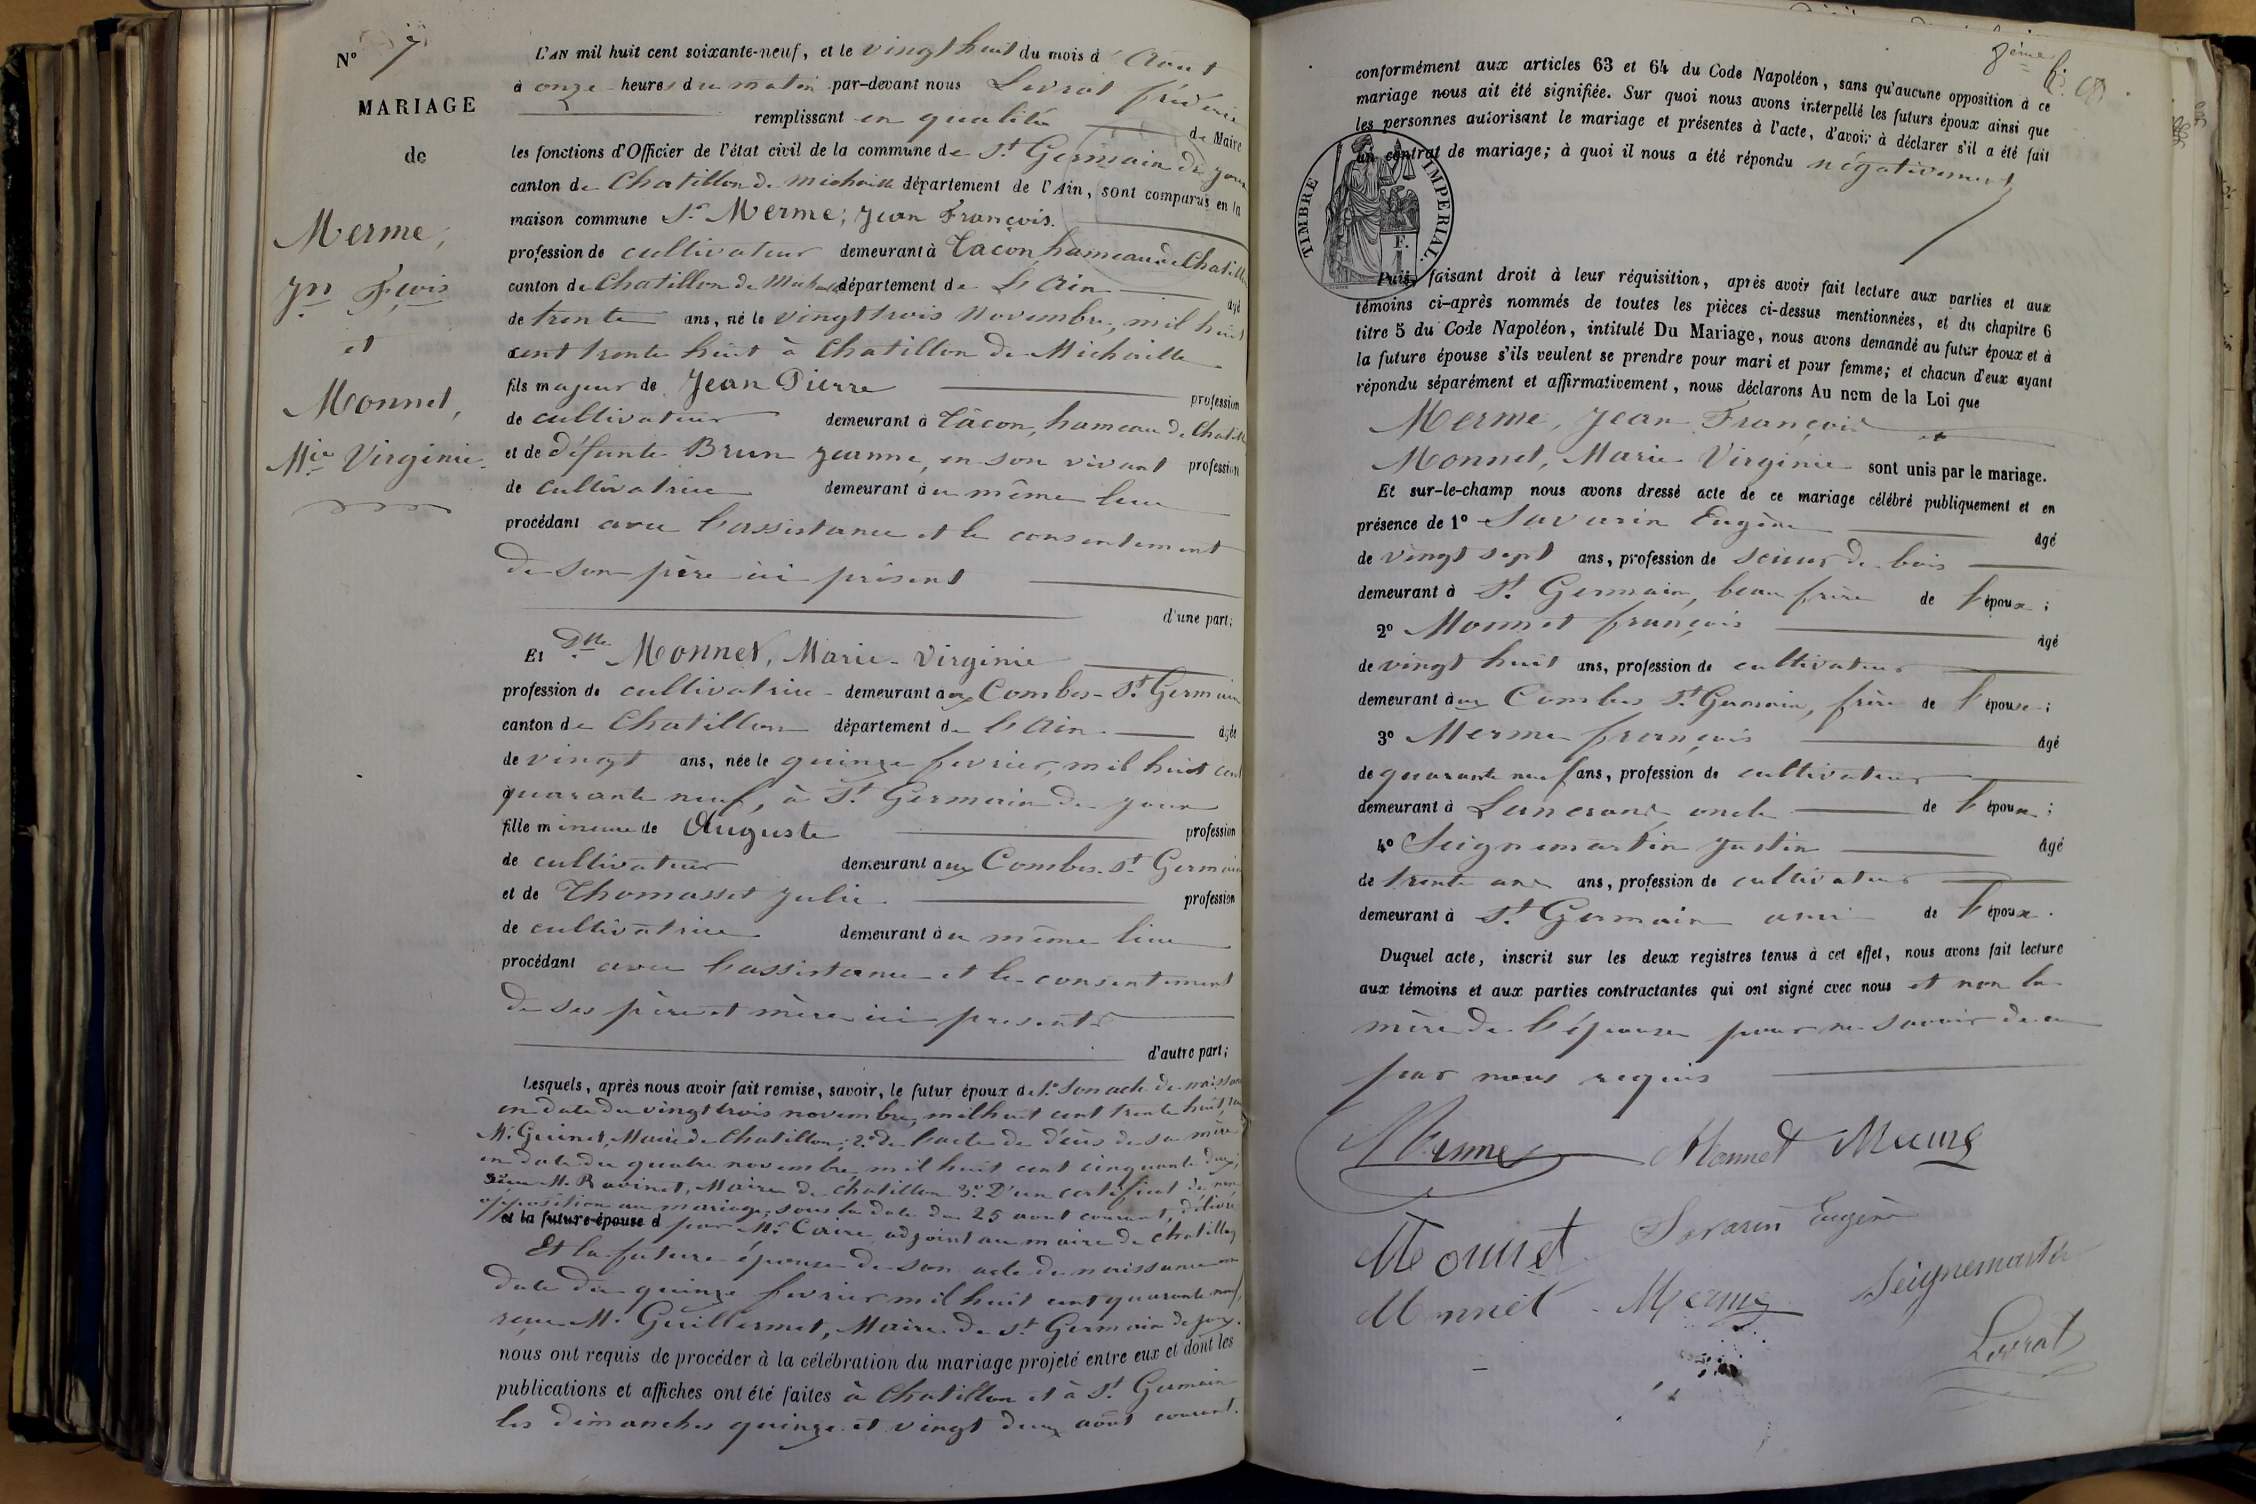 N° 7
MARIAGE
de
Merme,
Jn Fçois
et
Monnet,
Mie Virginie
L'AN mil huit cent soixante-neuf, et le vingt huit du mois d'Aout
à onze heures du matin par-devant nous Livrat frédéric
remplissant en qualité de Maire
les fonctions d'Officier de l'état civil de la commune de St Germain de Joux
canton de Chatillon de Michaille département de l'Ain, sont comparus en la
maison commune Sr Merme, Jean François.
profession de cultivateur demeurant à Tacon, hameau de Chatillon
canton de Chatillon de Michaille département de L'Ain âgé
de trente ans, né le vingt trois Novembre, mil huit
cent trente huit à Chatillon de Michaille
fils majeur de Jean Pierre profession
de cultivateur demeurant à Tâcon, hameau de Chatillon
et de défunte Brun Jeanne, en son vivant profession
de cultivatrice demeurant au même lieu
procédant avec l'assistance et le consentement
de son père ici présent
d'une part;
Et Dlle Monnet, Marie-Virginie
profession de cultivatrice demeurant aux Combes-St Germain
canton de Chatillon département de L'Ain âgée
de vingt ans, née le quinze fevrier, mil huit cent
quarante neuf, à St Germain de Joux
fille mineure de Auguste profession
de cultivateur demeurant aux Combes-St Germain
et de Thomasset Julie profession
de cultivatrice demeurant au même lieu
procédant avec l'assistance et le consentement
de ses père et mère ici presents
d'autre part;
Lesquels, après nous avoir fait remise, savoir, le futur époux de 1° son acte de naissance
en date du vingt trois novembre, mil huit cent trente huit,
Mr Guinet, Maire de Chatillon; 2° de l'acte de décès de sa mère
en date du quatre novembre mil huit cent cinquante deux,
M. Ravinet, Maire de chatillon 3° D'un certificat de non
opposition au mariage, sous la date du 25 aout courant, délivré
et la future épouse d par Mr Caire, adjoint au maire de chatillon
Et la future épouse de son acte de naissance en
date du quinze fevrier mil huit cent quarante neuf,
reçu M. Guillermet, Maire de St Germain de Joux.
nous ont requis de procéder à la célébration du mariage projeté entre eux et dont les
publications et affiches ont été faites à Chatillon et à St Germain
les dimanches quinze et vingt deux août courant.
8ème
conformément aux articles 63 et 64 du Code Napoléon, sans qu'aucune opposition à ce
mariage nous ait été signifiée. Sur quoi nous avons interpellé les futurs époux ainsi que
les personnes autorisant le mariage et présentes à l'acte, d'avoir à déclarer s'il a été fait
un contrat de mariage; à quoi il nous a été répondu négativement
TIMBRE IMPERIAL.
F.
Puis, faisant droit à leur réquisition, après avoir fait lecture aux parties et aux
témoins ci-après nommés de toutes les pièces ci-dessus mentionnées, et du chapitre 6
titre 5 du Code Napoléon, intitulé Du Mariage, nous avons demandé au futur époux et à
la future épouse s'ils veulent se prendre pour mari et pour femme; et chacun d'eux ayant
répondu séparément et affirmativement, nous déclarons Au nom de la Loi que
Merme, Jean François et
Monnet, Marie Virginie sont unis par le mariage.
Et sur-le-champ nous avons dressé acte de ce mariage célébré publiquement et en
présence de 1° Savarin Eugène âgé
de vingt sept ans, profession de scieur de bois
demeurant à St Germain, beau frère de l'époux;
2° Monnet françois âgé
de vingt huit ans, profession de cultivateur
demeurant aux Combes St Germain, frère de l'épouse;
3° Merme françois âgé
de quarante neuf ans, profession de cultivateur
demeurant à Lancrans, oncle de l'époux;
4° Seignemartin Justin âgé
de trente ans, profession de cultivateur
demeurant à St Germain ami de l'époux.
Duquel acte, inscrit sur les deux registres tenus à cet effet, nous avons fait lecture
aux témoins et aux parties contractantes qui ont signé avec nous et non la
mère de l'épouse pour ne savoir de ce
par nous requis
Merme Monnet Merme
Monnet Savarin Eugène
Monnet Merme Seignemartin
Livrat